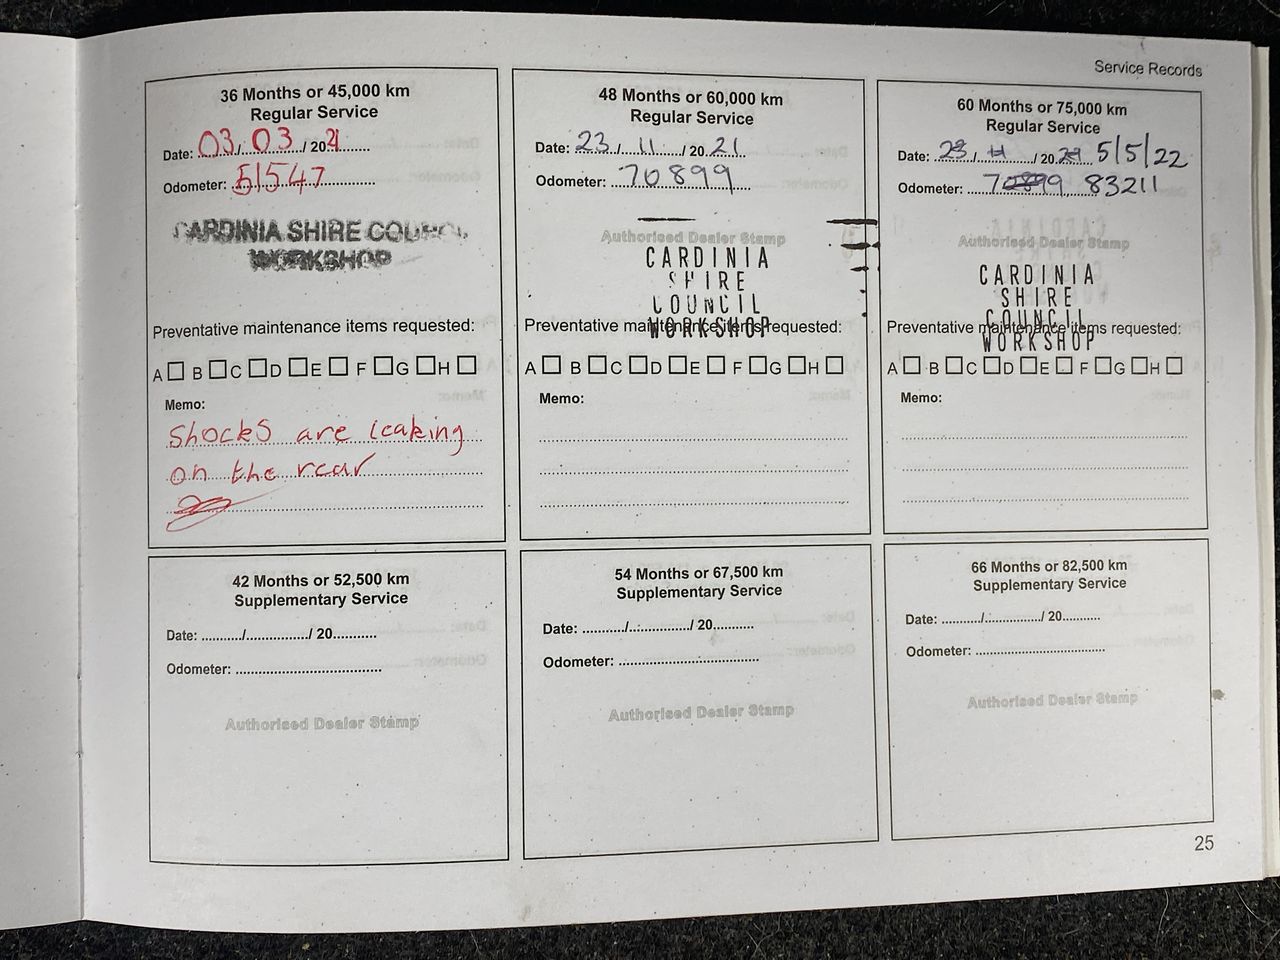 Service Records
36 Months or 45,000 km
Regular Service
Date: 03 / 03 / 2021
Odometer: 51547
CARDINIA SHIRE COUNCIL
WORKSHOP
Preventative maintenance items requested:
A B C D E F G H
Memo:
Shocks are leaking
on the rear
48 Months or 60,000 km
Regular Service
Date: 23 / 11 / 20 21
Odometer: 70899
Authorised Dealer Stamp
CARDINIA
SHIRE
COUNCIL
WORKSHOP
Preventative maintenance items requested:
A B C D E F G H
Memo:
60 Months or 75,000 km
Regular Service
Date: 23 / 11 / 20 21 5/5/22
Odometer: 70899 83211
Authorised Dealer Stamp
CARDINIA
SHIRE
COUNCIL
WORKSHOP
Preventative maintenance items requested:
A B C D E F G H
Memo:
42 Months or 52,500 km
Supplementary Service
Date: ........../................/ 20...........
Odometer: .....................................
Authorised Dealer Stamp
54 Months or 67,500 km
Supplementary Service
Date: ........../................/ 20..........
Odometer: ...................................
Authorised Dealer Stamp
66 Months or 82,500 km
Supplementary Service
Date: ........../................/ 20..........
Odometer: .................................
Authorised Dealer Stamp
25